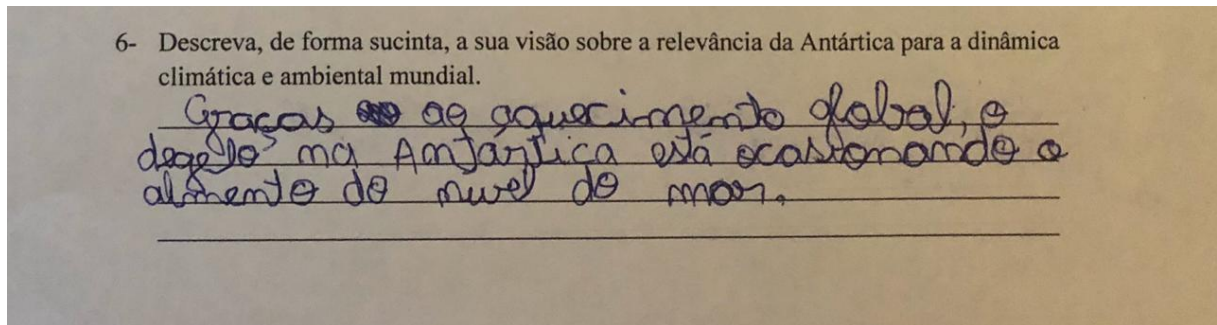 6- Descreva, de forma sucinta, a sua visão sobre a relevância da Antártica para a dinâmica
climática e ambiental mundial.
Graças ao aquecimento global, o
degelo na Antártica está ocasionando o
almento do nivel do mar.